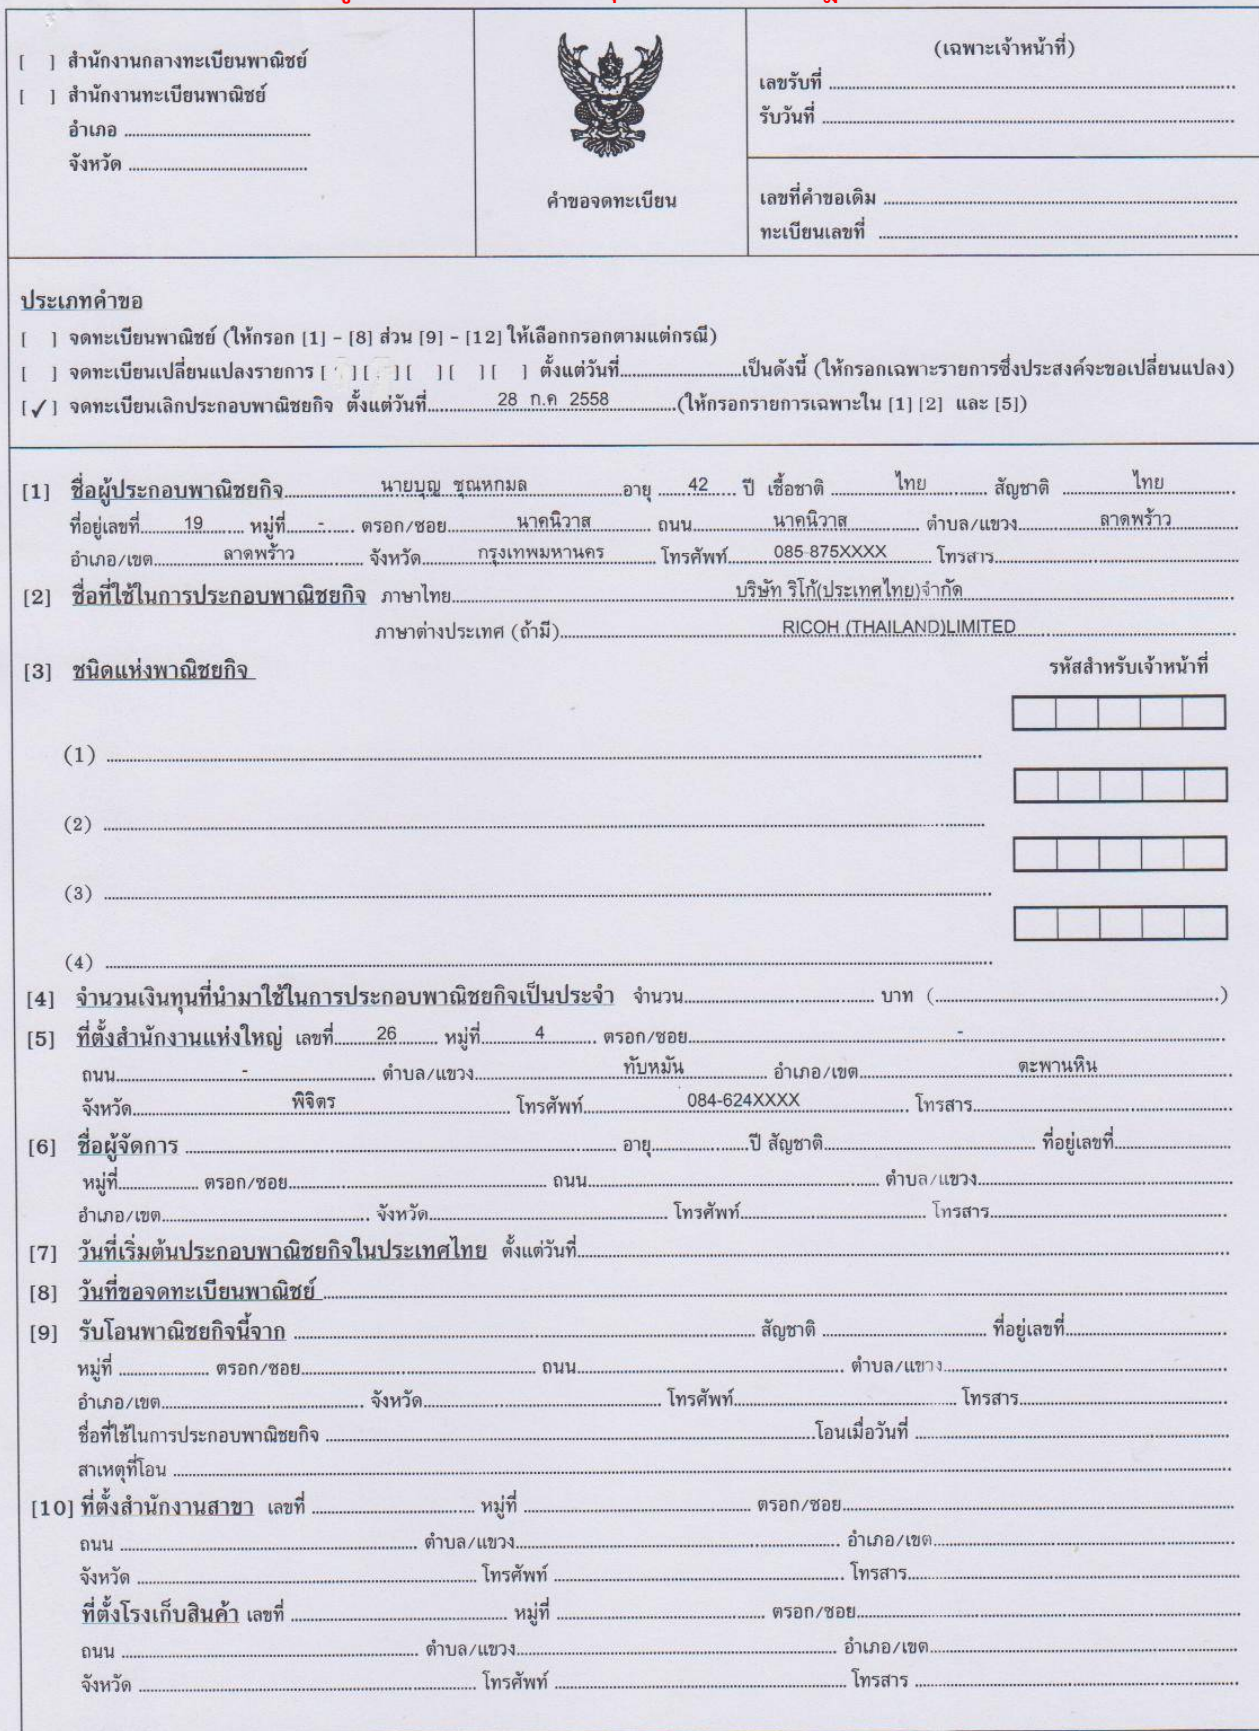 [ ] สำนักงานกลางทะเบียนพาณิชย์
[ ] สำนักงานทะเบียนพาณิชย์
อำเภอ ................
จังหวัด ................
คำขอจดทะเบียน
(เฉพาะเจ้าหน้าที่)
เลขรับที่ ................
รับวันที่ ................
เลขที่คำขอเดิม ................
ทะเบียนเลขที่ ................
ประเภทคำขอ
[ ] จดทะเบียนพาณิชย์ (ให้กรอก [1] - [8] ส่วน [9] - [12] ให้เลือกกรอกตามแต่กรณี)
[ ] จดทะเบียนเปลี่ยนแปลงรายการ [ ] [ ] [ ] [ ] [ ] ตั้งแต่วันที่................เป็นดังนี้ (ให้กรอกเฉพาะรายการซึ่งประสงค์จะขอเปลี่ยนแปลง)
[✓] จดทะเบียนเลิกประกอบพาณิชยกิจ ตั้งแต่วันที่........28 ก.ค 2558........(ให้กรอกรายการเฉพาะใน [1] [2] และ [5])
[1] ชื่อผู้ประกอบพาณิชยกิจ........นายบุญ ชุณหกมล........อายุ ....42.... ปี เชื้อชาติ ........ไทย........ สัญชาติ ........ไทย........
ที่อยู่เลขที่....19.... หมู่ที่....-.... ตรอก/ซอย........นาคนิวาส........ ถนน........นาคนิวาส........ ตำบล/แขวง........ลาดพร้าว........
อำเภอ/เขต........ลาดพร้าว........ จังหวัด........กรุงเทพมหานคร........ โทรศัพท์........085-875XXXX........ โทรสาร................
[2] ชื่อที่ใช้ในการประกอบพาณิชยกิจ ภาษาไทย........บริษัท ริโก้(ประเทศไทย)จำกัด........
ภาษาต่างประเทศ (ถ้ามี)........RICOH (THAILAND)LIMITED........
[3] ชนิดแห่งพาณิชยกิจ รหัสสำหรับเจ้าหน้าที่
(1) ................
(2) ................
(3) ................
(4) ................
[4] จำนวนเงินทุนที่นำมาใช้ในการประกอบพาณิชยกิจเป็นประจำ จำนวน................ บาท (................)
[5] ที่ตั้งสำนักงานแห่งใหญ่ เลขที่........26........ หมู่ที่........4........ ตรอก/ซอย........-........
ถนน........-........ ตำบล/แขวง........ทับหมัน........ อำเภอ/เขต........ตะพานหิน........
จังหวัด........พิจิตร........ โทรศัพท์........084-624XXXX........ โทรสาร................
[6] ชื่อผู้จัดการ ................ อายุ................ปี สัญชาติ................ ที่อยู่เลขที่................
หมู่ที่................ ตรอก/ซอย................ ถนน................ ตำบล/แขวง................
อำเภอ/เขต................ จังหวัด................ โทรศัพท์................ โทรสาร................
[7] วันที่เริ่มต้นประกอบพาณิชยกิจในประเทศไทย ตั้งแต่วันที่................
[8] วันที่ขอจดทะเบียนพาณิชย์ ................
[9] รับโอนพาณิชยกิจนี้จาก ................ สัญชาติ ................ ที่อยู่เลขที่................
หมู่ที่ ................ ตรอก/ซอย................ ถนน................ ตำบล/แขวง................
อำเภอ/เขต................ จังหวัด................ โทรศัพท์................ โทรสาร................
ชื่อที่ใช้ในการประกอบพาณิชยกิจ ................โอนเมื่อวันที่ ................
สาเหตุที่โอน ................
[10] ที่ตั้งสำนักงานสาขา เลขที่ ................ หมู่ที่ ................ ตรอก/ซอย................
ถนน ................ ตำบล/แขวง................ อำเภอ/เขต................
จังหวัด ................ โทรศัพท์ ................ โทรสาร................
ที่ตั้งโรงเก็บสินค้า เลขที่ ................ หมู่ที่ ................ ตรอก/ซอย................
ถนน ................ ตำบล/แขวง................ อำเภอ/เขต................
จังหวัด ................ โทรศัพท์ ................ โทรสาร ................